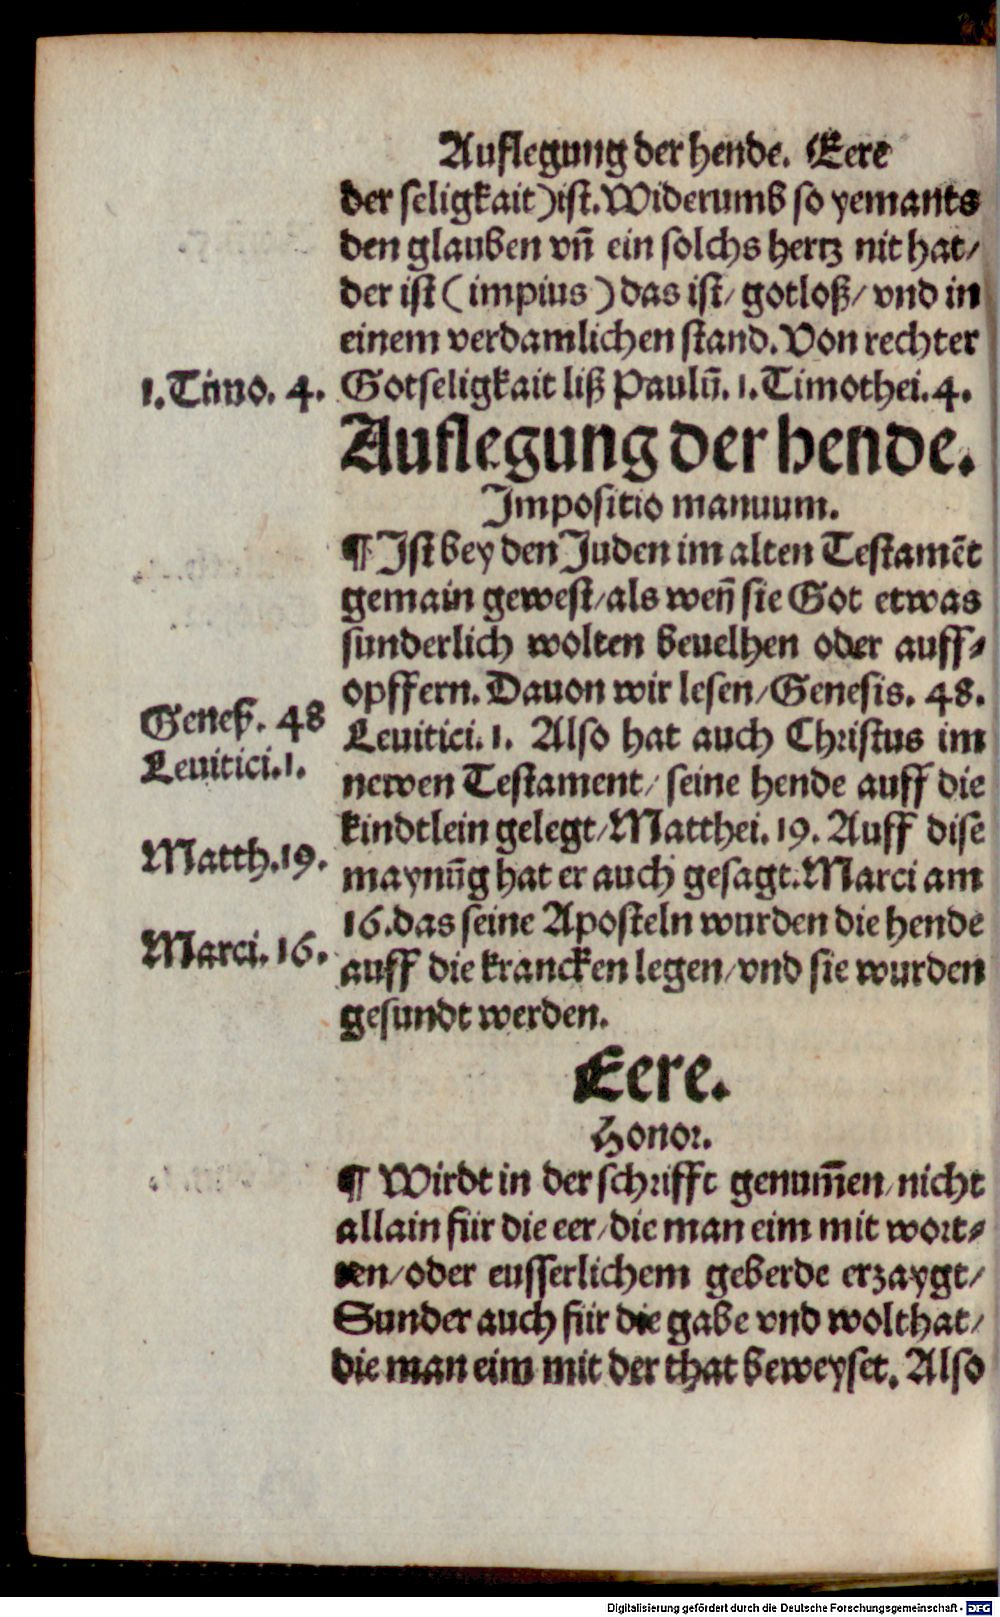 Auflegung der hende. Eere
der seligkait) ist. Widerumb so yemants
den glauben vn̄ ein solchs hertz nit hat/
der ist (impius) das ist/ gotloß/ vnd in
einem verdamlichen stand. Von rechter
1. Timo. 4.
Gotseligkait liß Paulū. 1. Timothei. 4.
Auflegung der hende.
Impositio manuum.
¶ Ist bey den Juden im alten Testamēt
gemain gewest/ als wen̄ sie Got etwas
sunderlich wolten beuelhen oder auff⸗
opffern. Dauon wir lesen/ Genesis. 48.
Geneß. 48
Leuitici. 1. Also hat auch Christus im
Leuitici. 1.
newen Testament/ seine hende auff die
kindtlein gelegt/ Matthei. 19. Auff dise
Matth. 19.
maynūg hat er auch gesagt. Marci am
16. das seine Aposteln wurden die hende
Marci. 16.
auff die krancken legen/ vnd sie wurden
gesundt werden.
Eere.
Honor.
¶ Wirdt in der schrifft genum̄en/ nicht
allain für die eer/ die man eim mit wort⸗
ten/ oder eusserlichem geberde erzaygt/
Sunder auch für die gabe vnd wolthat/
die man eim mit der that beweyset. Also
Digitalisierung gefördert durch die Deutsche Forschungsgemeinschaft - DFG